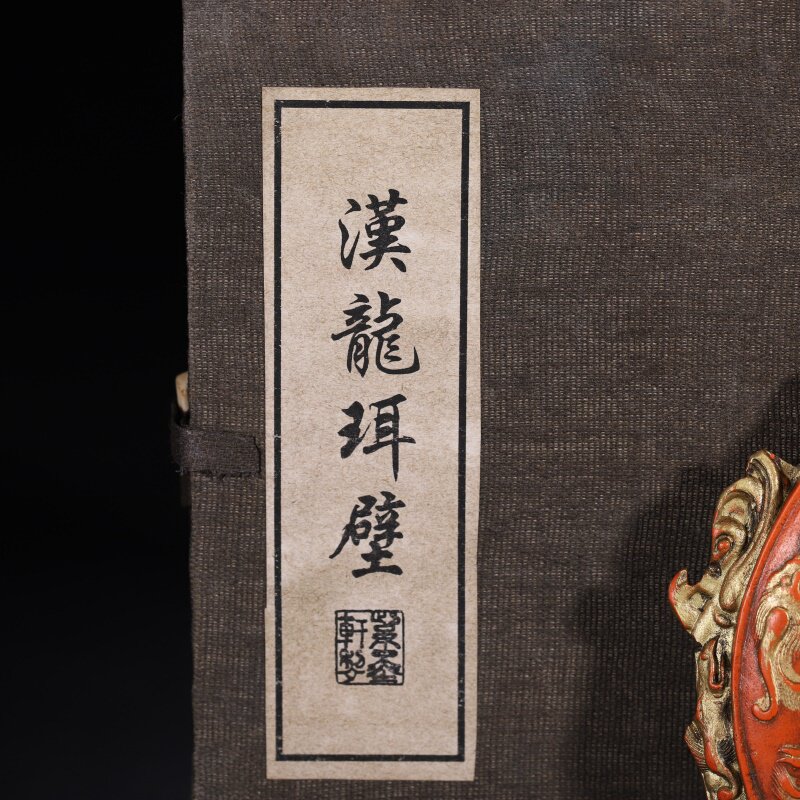 漢龍珥壁